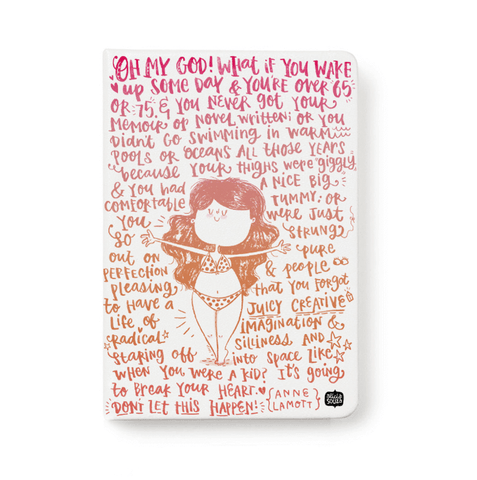 OH MY GOD! WHAT IF YOU WAKE
UP SOME DAY & YOU'RE OVER 65
OR 75, & YOU NEVER GOT YOUR
MEMOIR OR NOVEL WRITTEN; OR YOU
DIDN'T GO SWIMMING IN WARM
POOLS OR OCEANS ALL THOSE YEARS
BECAUSE YOUR THIGHS WERE GIGGLY
& YOU HAD A NICE BIG
COMFORTABLE TUMMY; OR
YOU WERE JUST
SO STRUNG
OUT ON PURE
PERFECTION & PEOPLE
PLEASING THAT YOU FORGOT
TO HAVE A JUICY CREATIVE
LIFE OF IMAGINATION &
RADICAL SILLINESS AND
STARING OFF INTO SPACE LIKE
WHEN YOU WERE A KID? IT'S GOING
TO BREAK YOUR HEART.
DON'T LET THIS HAPPEN! {ANNE LAMOTT}
alicia souza